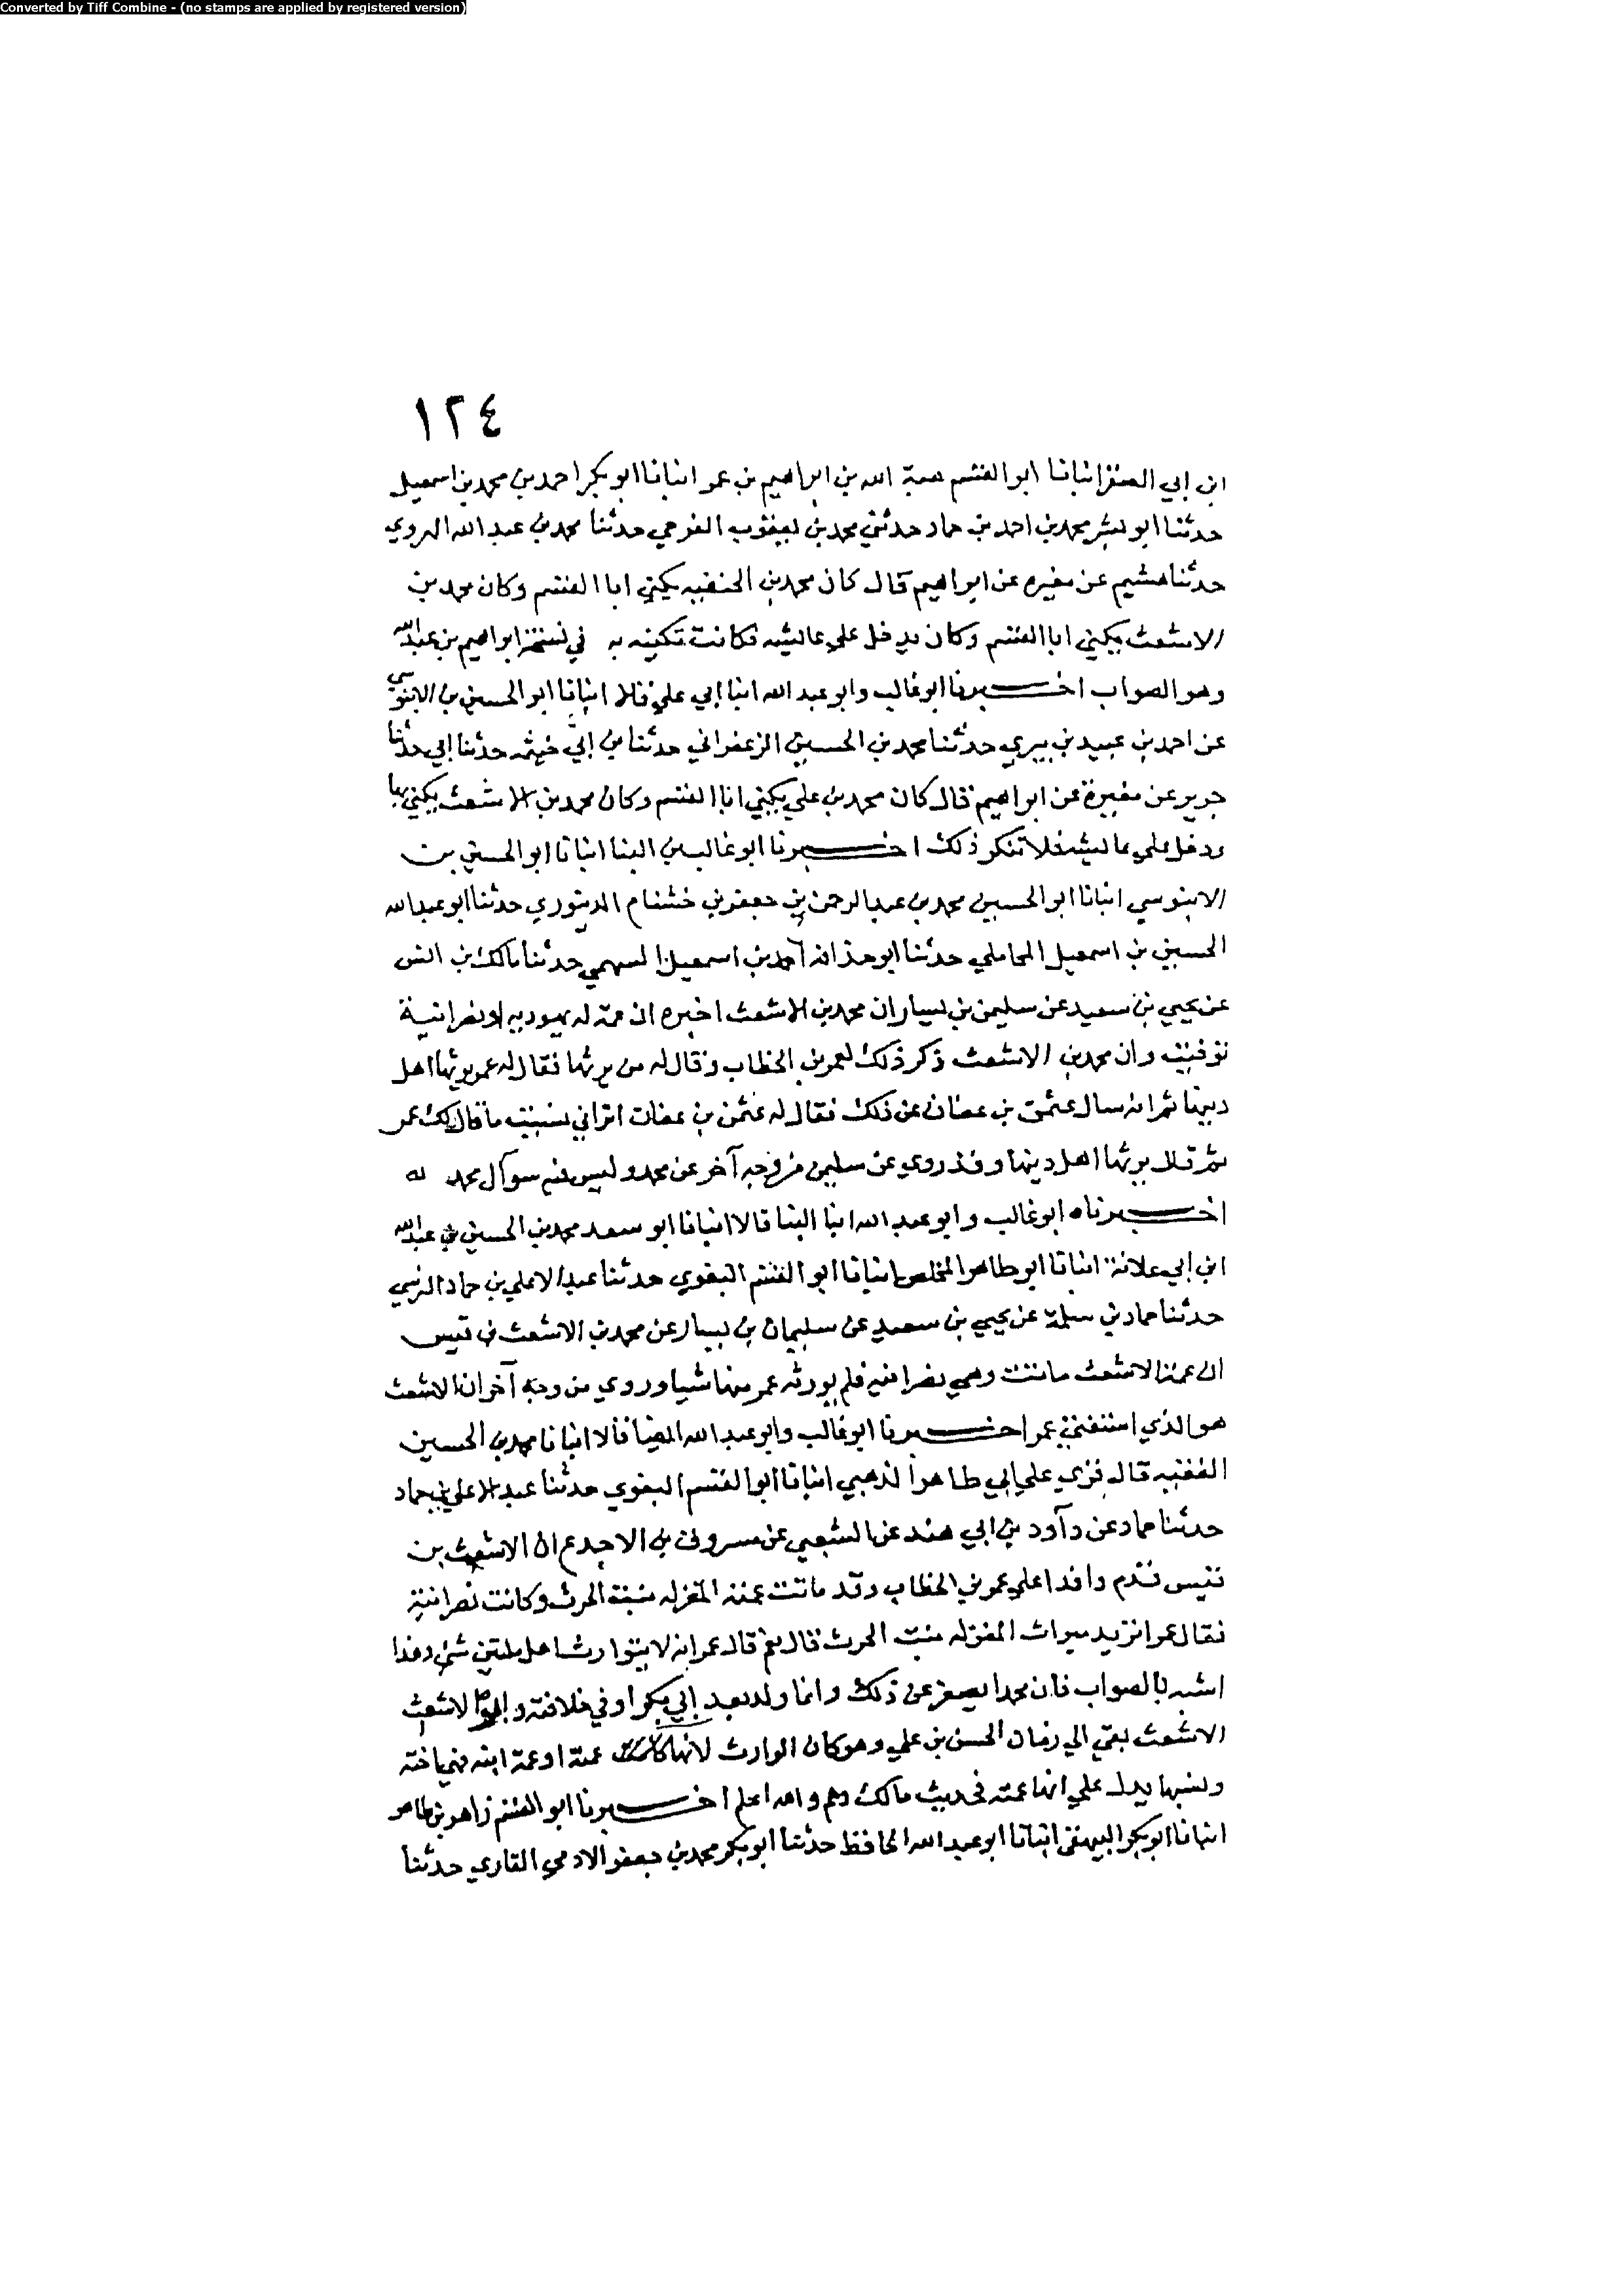 Converted by Tiff Combine - (no stamps are applied by registered version)
١٢٤
ابن ابي الصقر انبانا ابو القسم هبة الله بن ابراهيم بن عمر انبانا ابو بكر احمد بن محمد بن اسمعيل
حدثنا ابو بشر محمد بن احمد بن حماد حدثني محمد بن يعقوب الفرجي حدثنا محمد بن عبد الله الهروي
حدثنا هشيم عن مغيره عن ابراهيم قال كان محمد بن الحنفيه يكني ابا القسم وكان محمد بن
الاشعث يكني ابا القسم وكان يدخل علي عايشه فكانت تكنيه به في ابراهيم بن عبد الله
وهو الصواب اخبرنا ابو غالب وابو عبد الله ابنا ابي علي قالا انبانا ابو الحسين بن الابنوسي
عن احمد بن عبيد بن بيري حدثنا محمد بن الحسين الزعفراني حدثنا بن ابي خيثمه حدثنا ابي حدثنا
جرير عن مغيرة عن ابراهيم قال كان محمد بن علي يكني ابا القسم وكان محمد بن الاشعث يكني بها
يدخل علي عايشه فلا تنكر ذلك اخبرنا ابو غالب بن البنا انبانا ابو الحسين بن
الابنوسي انبانا ابو الحسين محمد بن عبد الرحمن بن جعفر بن خشنام الدينوري حدثنا ابو عبد الله
الحسين بن اسمعيل المحاملي حدثنا ابو حذافه احمد بن اسمعيل السهمي حدثنا مالك بن انس
عن يحيي بن سعيد عن سليمن بن يسار ان محمد بن الاشعث اخبره ان عمة له يهوديه او نصرانية
توفيت وان محمد بن الاشعث ذكر ذلك لعمر بن الخطاب وقال له من يرثها فقال له عمر يرثها اهل
دينها ثم انه سال عثمن بن عفان عن ذلك فقال له عثمن بن عفان اتراني نسيت ما قال لك عمر
ثم قال يرثها اهل دينها وقد روي عن سليمن من وجه آخر عن محمد وليس فيه سوآل محمد له
اخبرناه ابو غالب وابو عبد الله ابنا البنا قالا انبانا ابو سعد محمد بن الحسين بن عبد الله
ابن ابي علانة انبانا ابو طاهر المخلص انبانا ابو القسم البغوي حدثنا عبد الاعلي بن حماد النرسي
حدثنا حماد بن سلمة عن يحيي بن سعيد عن سليمان بن يسار عن محمد بن الاشعث بن قيس
ان عمة الاشعث ماتت وهي نصرانيه فلم يورثه عمر منها شيا وروي من وجه آخر ان الاشعث
هو الذي استفتي عمر اخبرنا ابو غالب وابو عبد الله ايضا قالا انبانا محمد بن الحسين
الفقيه قال قري علي ابي طاهر الذهبي انبانا ابو القسم البغوي حدثنا عبد الاعلي بن حماد
حدثنا حماد عن دآود بن ابي هند عن الشعبي عن مسروق بن الاجدع ان الاشعث بن
قيس قدم وافدا علي عمر بن الخطاب وقد ماتت عمته بنت الحرث وكانت نصرانية
فقال عمر اتريد ميراث بنت الحرث قال نعم قال عمر انه لا يتوارث اهل ملتين شي وهذا
اشبه بالصواب فان محمدا يصغر عن ذلك وانما ولد بعد ابي بكر او في خلافته الاشعث
الاشعث بقي الي زمان الحسن بن علي وهو كان الوارث لانها كانت عمته او عمة ابيه فهي اخته
ونسبها يدل علي انها عمته في حديث مالك وهم والله اعلم اخبرنا ابو القسم زاهر بن طاهر
انبانا ابو بكر البيهقي انبانا ابو عبد الله الحافظ حدثنا ابو بكر محمد بن جعفر الادمي القاري حدثنا